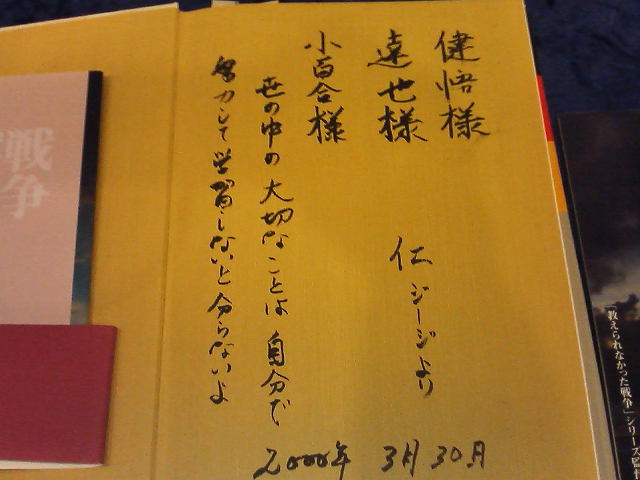 健悟様
遠也様
小百合様
仁ジージより
世の中の大切なことは自分で
努力して学習しないと分らないよ
2000年 3月30日
戦争
「教えられなかった戦争」シリーズ監督